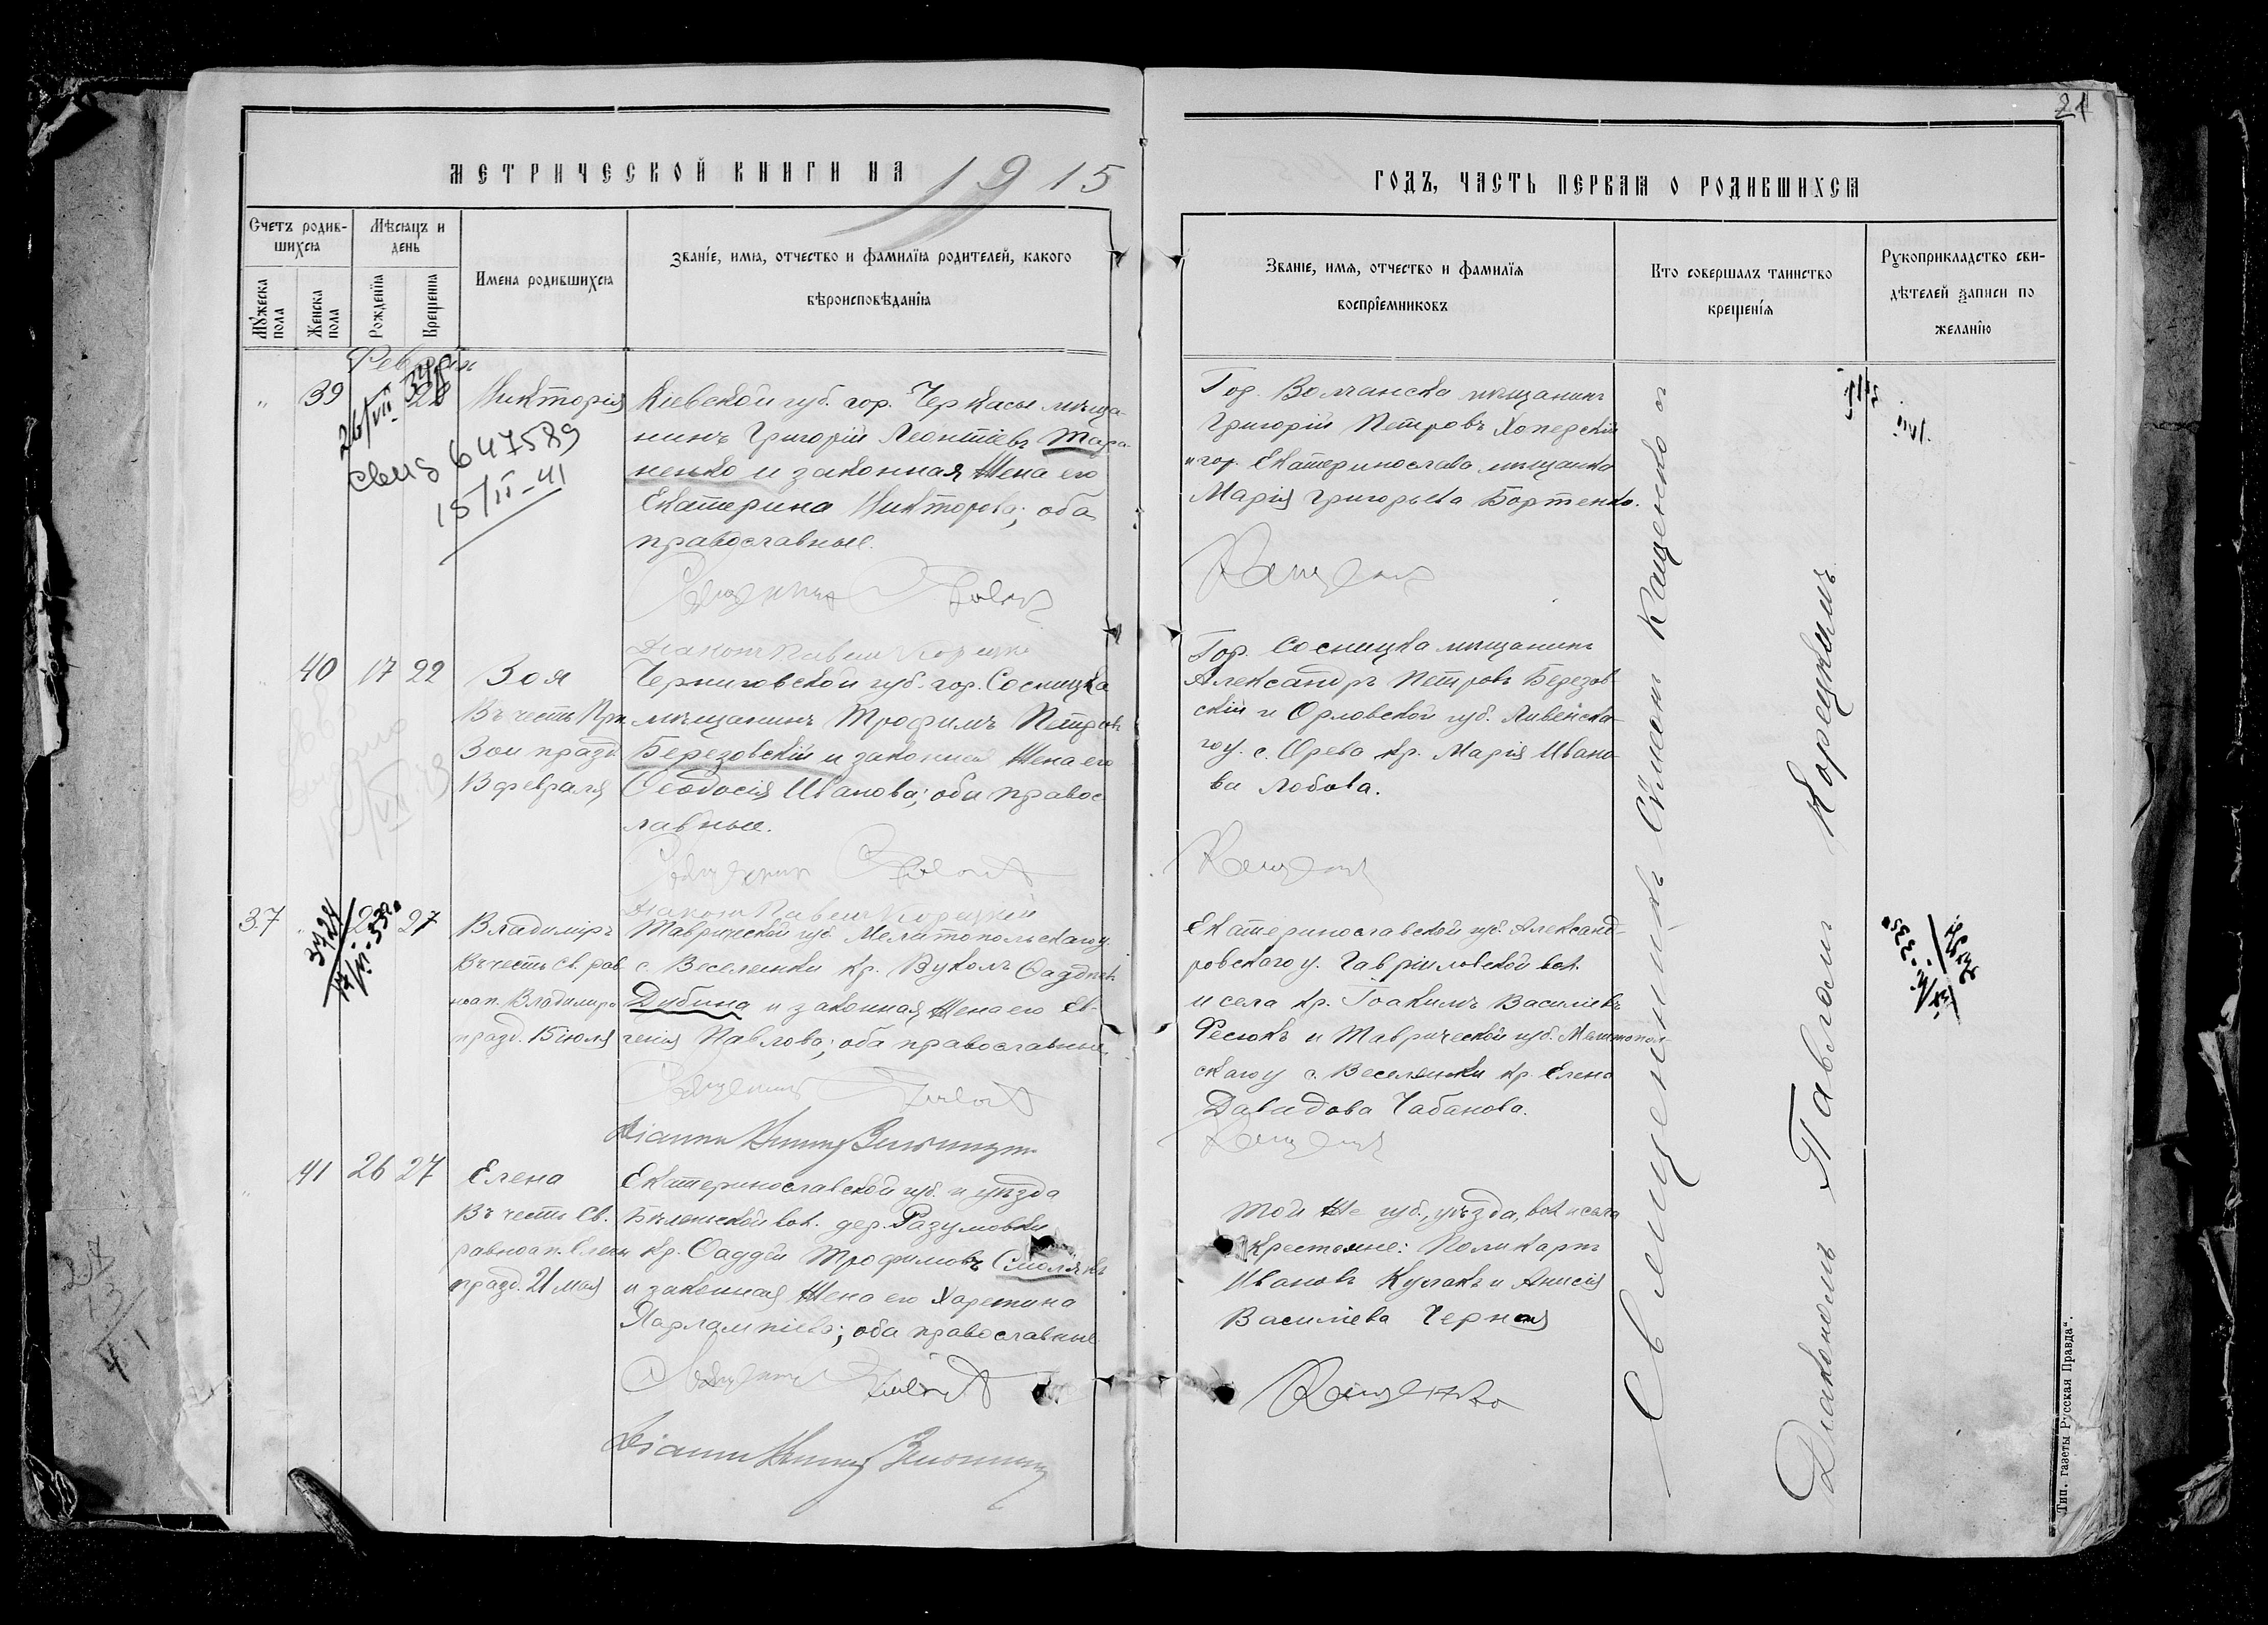 МЕТРИЧЕСКОЙ КНИГИ НА 1915
ГОДЪ, ЧАСТЬ ПЕРВАЯ О РОДИВШИХСЯ
21
Счетъ родив-
шихся
Мѣсяцъ и
день
Мужеска пола
Женска пола
Рожденія
Крещенія
Имена родившихся
Званіе, имя, отчество и фамилія родителей, какого
вѣроисповѣданія
Званіе, имя, отчество и фамилія
воспріемниковъ
Кто совершалъ таинство
крещенія
Рукоприкладство сви-
дѣтелей записи по
желанію
39
26/VII
647589
15/II-41
Викторія
Кіевской губ. гор. Черкасы мѣща-
нинъ Григорій Леонтіевъ Тара-
ненко и законная жена его
Екатерина Викторова; оба
православные.
Гор. Волчанска мѣщанинъ
Григорій Петровъ
и гор. Екатеринослава мѣщанка
Марія Григорьева Бортенко.
Діаконъ Павелъ Корецкій
40 17 22
Зоя
Въ честь Прп.
Зои празд.
13 февраля
Черниговской губ. гор. Сосницка
мѣщанинъ Трофимъ Петровъ
Березовскій и законная жена его
Ѳеодосія Иванова; оба правос
лавные.
Гор. Сосницка мѣщанинъ
Александръ Петровъ Березов-
скій и Орловской губ. Ливенска-
го у. с. Орева кр. Марія Ивано-
ва Лобова.
Діаконъ Павелъ Корецкій
37 27
Владиміръ
Въ честь Св. рав
ноап. Владиміра
празд. 15 іюля
Таврической губ. Мелитопольскаго у.
с. Веселянки кр. Вуколъ Ѳаддѣев.
Дубина и законная жена его Ев-
генія Павлова; оба православные.
Екатеринославской губ. Александ-
ровскаго у. Гавриловской вол.
и села кр. Іоакимъ Василіевъ
Фесюкъ и Таврической губ. Мелитополь-
скаго у с. Веселянки кр. Елена
Давидова Чабанова.
41 26 27
Елена
Въ честь Св.
равноап. Елены
празд. 21 мая
Екатеринославской губ. и уѣзда
Бѣленской вол. дер. Разумовки
кр. Ѳаддей Трофимовъ Смолякъ
и законная жена его Харитина
Харлампіева; оба православные
Той же губ., уѣзда, вол. и села
крестьяне: Поликарпъ
Ивановъ Кулакъ и Анисія
Василіева Черная
Кащенко
Священникъ Сѵмеонъ Кащенко съ
Діакономъ Павломъ Корецкимъ
Тип. газеты „Русская Правда“.